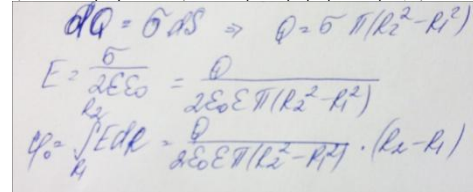 dQ = σ dS ⇒ Q = σ π(R₂² − R₁²)
E = σ / 2εε₀ = Q / 2ε₀επ(R₂² − R₁²)
φ₀ = ∫_{R₁}^{R₂} E dR = Q / 2ε₀επ(R₂² − R₁²) · (R₂ − R₁)